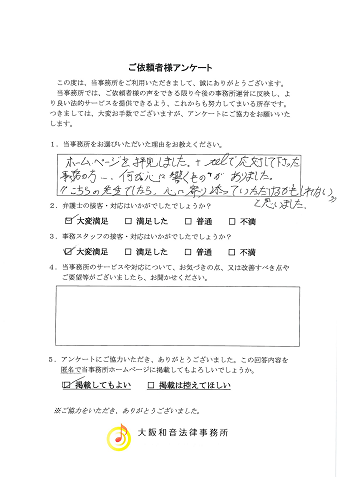 ご依頼者様アンケート
この度は、当事務所をご利用いただきまして、誠にありがとうございます。
当事務所では、ご依頼者様の声をできる限り今後の事務所運営に反映し、よ
り良い法的サービスを提供できるよう、これからも努力してまいる所存です。
つきましては、大変お手数でございますが、アンケートにご協力をお願いいた
します。
1．当事務所をお選びいただいた理由をお教えください。
ホームページを拝見しました。＋Telで応対して下さった
事務の方に、何か心に響くものがありました。
"こちらの先生でしたら、心に寄り添っていただけるかもしれない"
と思いました。
2．弁護士の接客・対応はいかがでしたでしょうか？
☑ 大変満足 □ 満足した □ 普通 □ 不満
3．事務スタッフの接客・対応はいかがでしたでしょうか？
☑ 大変満足 □ 満足した □ 普通 □ 不満
4．当事務所のサービスや対応について、お気づきの点、又は改善すべき点や
ご要望等がございましたら、お聞かせください。
5．アンケートにご協力いただき、ありがとうございました。この回答内容を
匿名で当事務所ホームページに掲載してもよろしいでしょうか。
☑ 掲載してもよい □ 掲載は控えてほしい
※ご協力をいただき、ありがとうございました。
大阪和音法律事務所